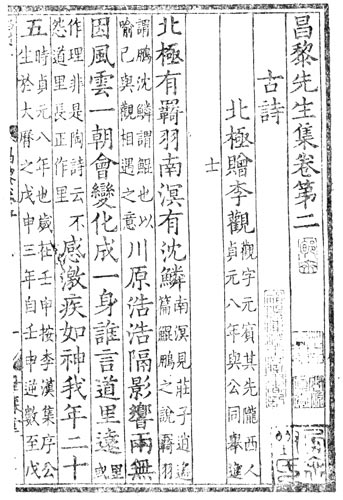 昌黎先生集卷第二
古詩
北極贈李觀觀字元賓其先隴西人貞元八年與公同舉進
士
北極有羈羽南溟有沈鱗南溟見莊子逍遙篇鯤鵬之說羈羽
謂鵬沈鱗謂鯤也以喻已與觀相遇之意川原浩浩隔影響兩無
因風雲一朝會變化成一身誰言道里遠里或
作理非是陶詩云不怨道里長正作里感激疾如神我年二十
五時貞元八年也歲在壬申按李漢集序公生於大曆之戊申三年自壬申逆數至戊